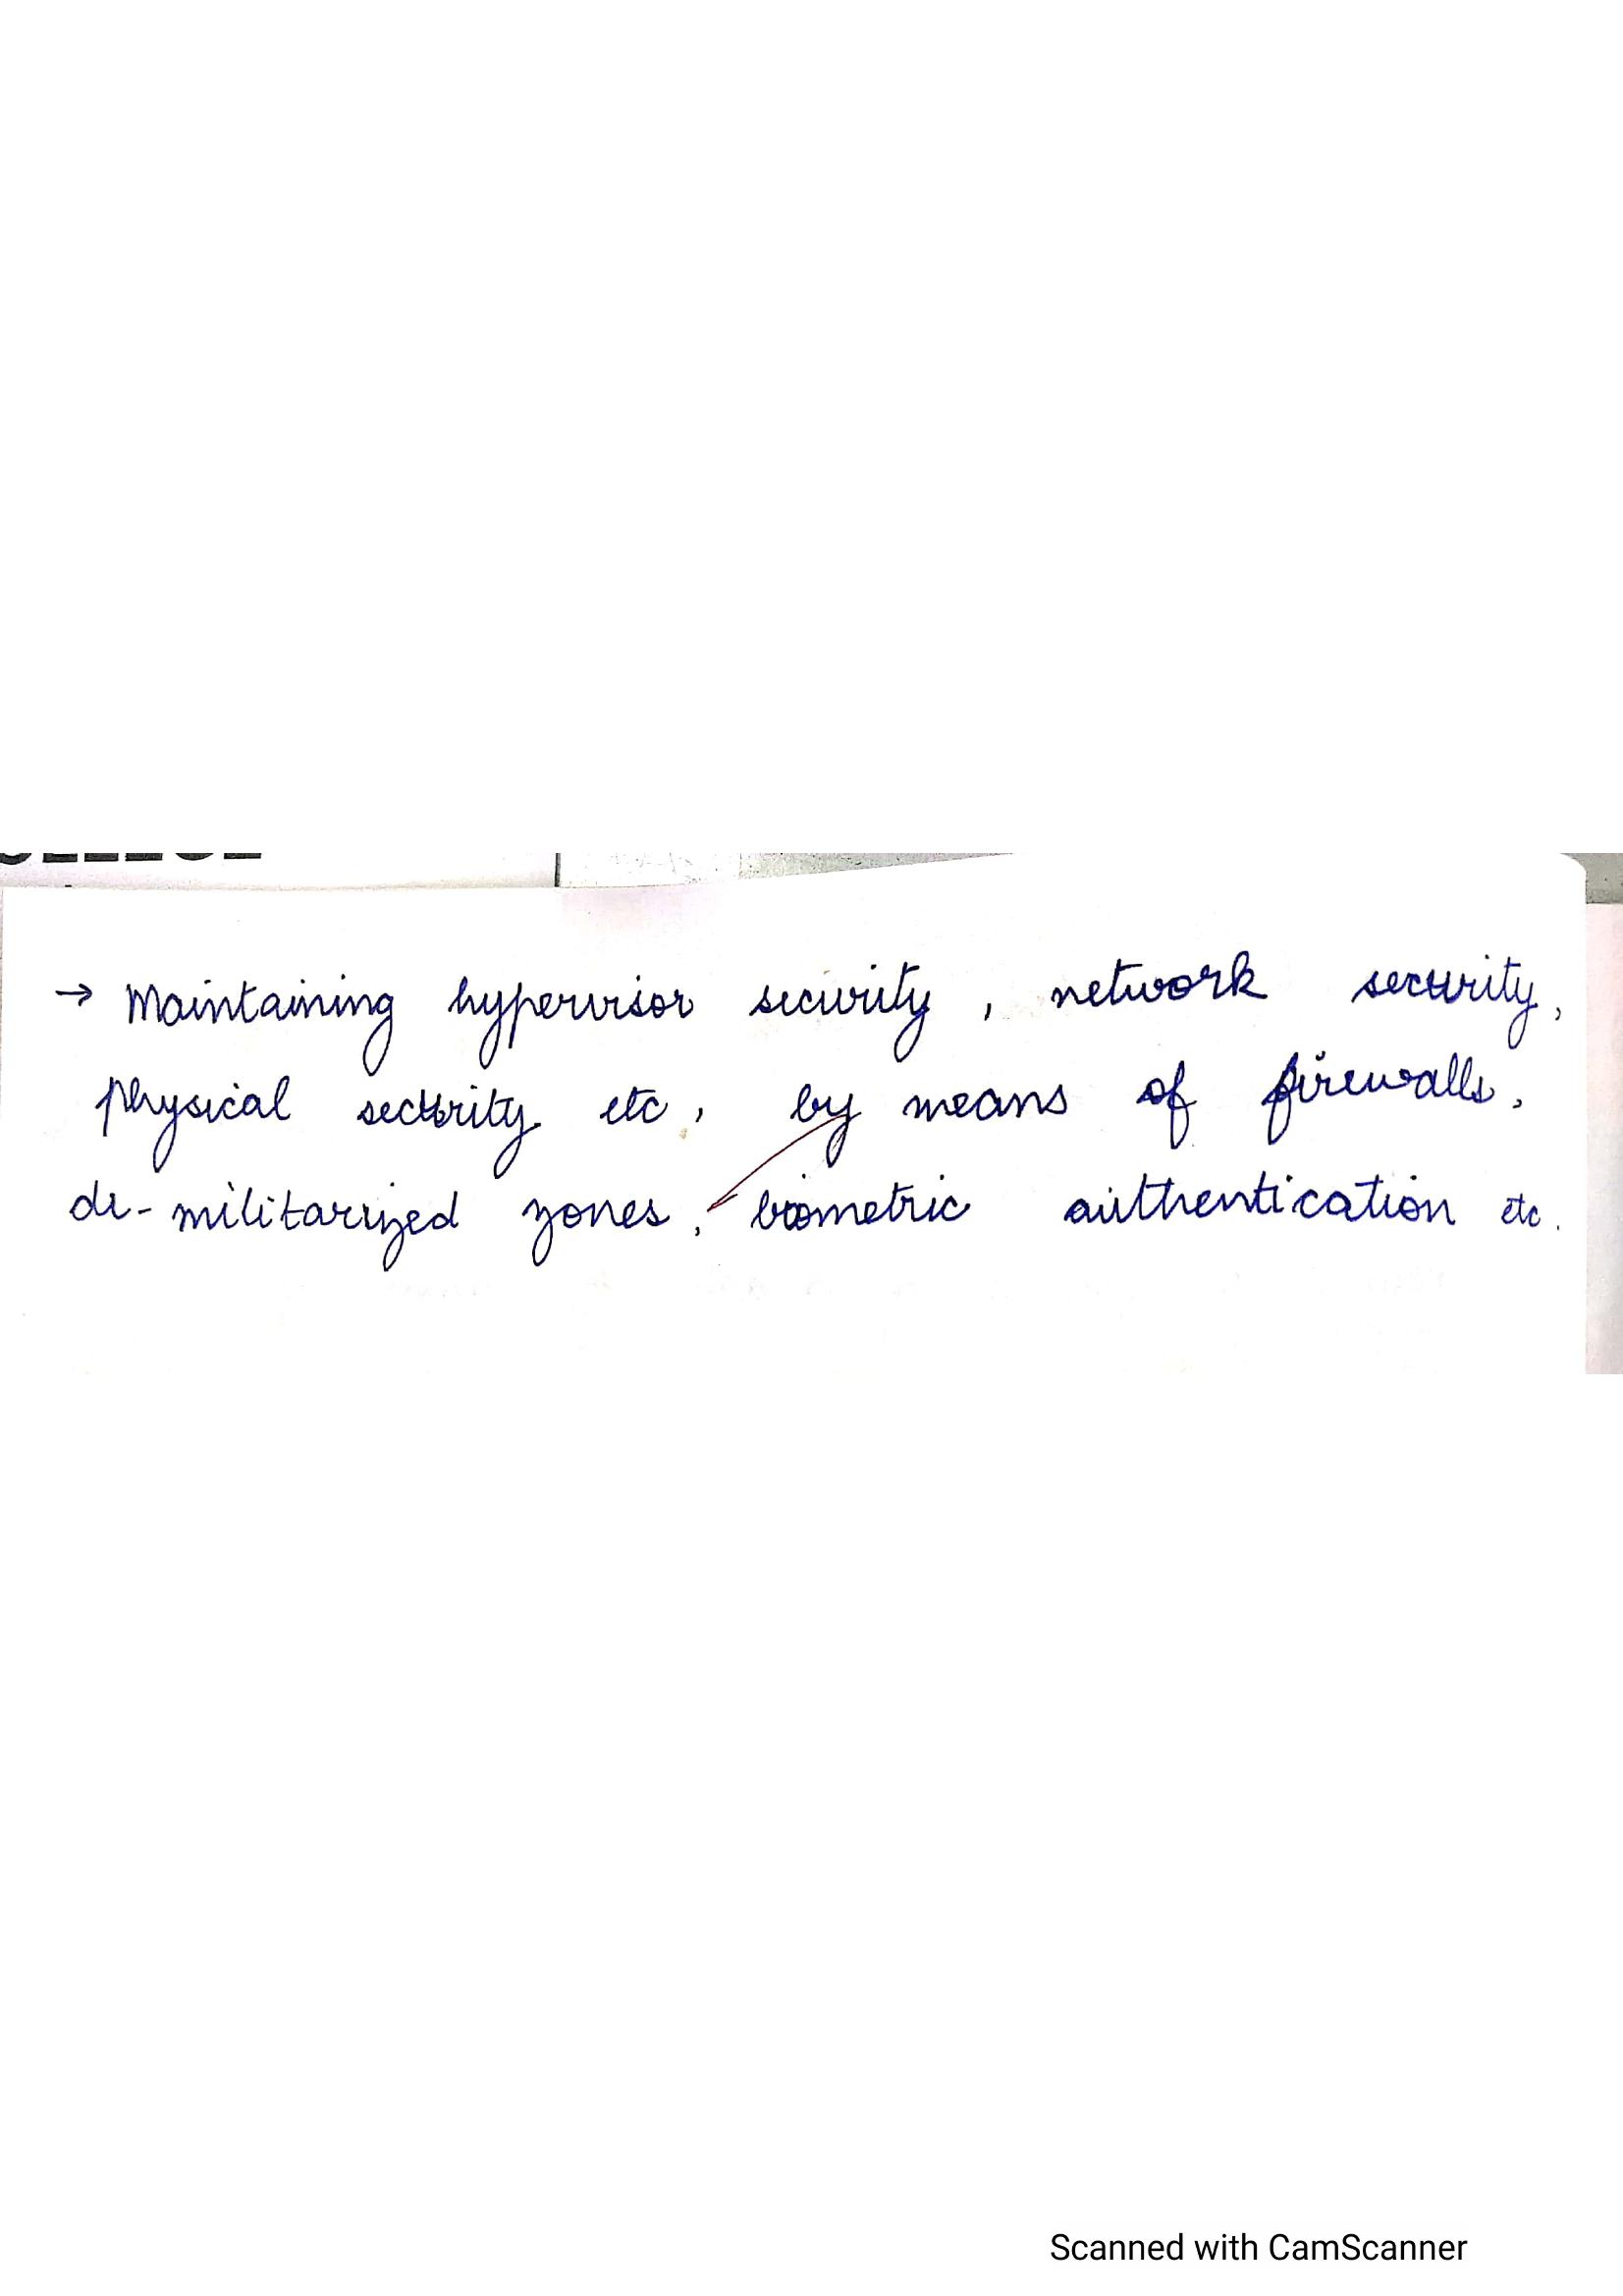 → Maintaining hypervisor security, network security,
physical security etc, by means of firewalls,
de-militarized zones, biometric authentication etc.
Scanned with CamScanner